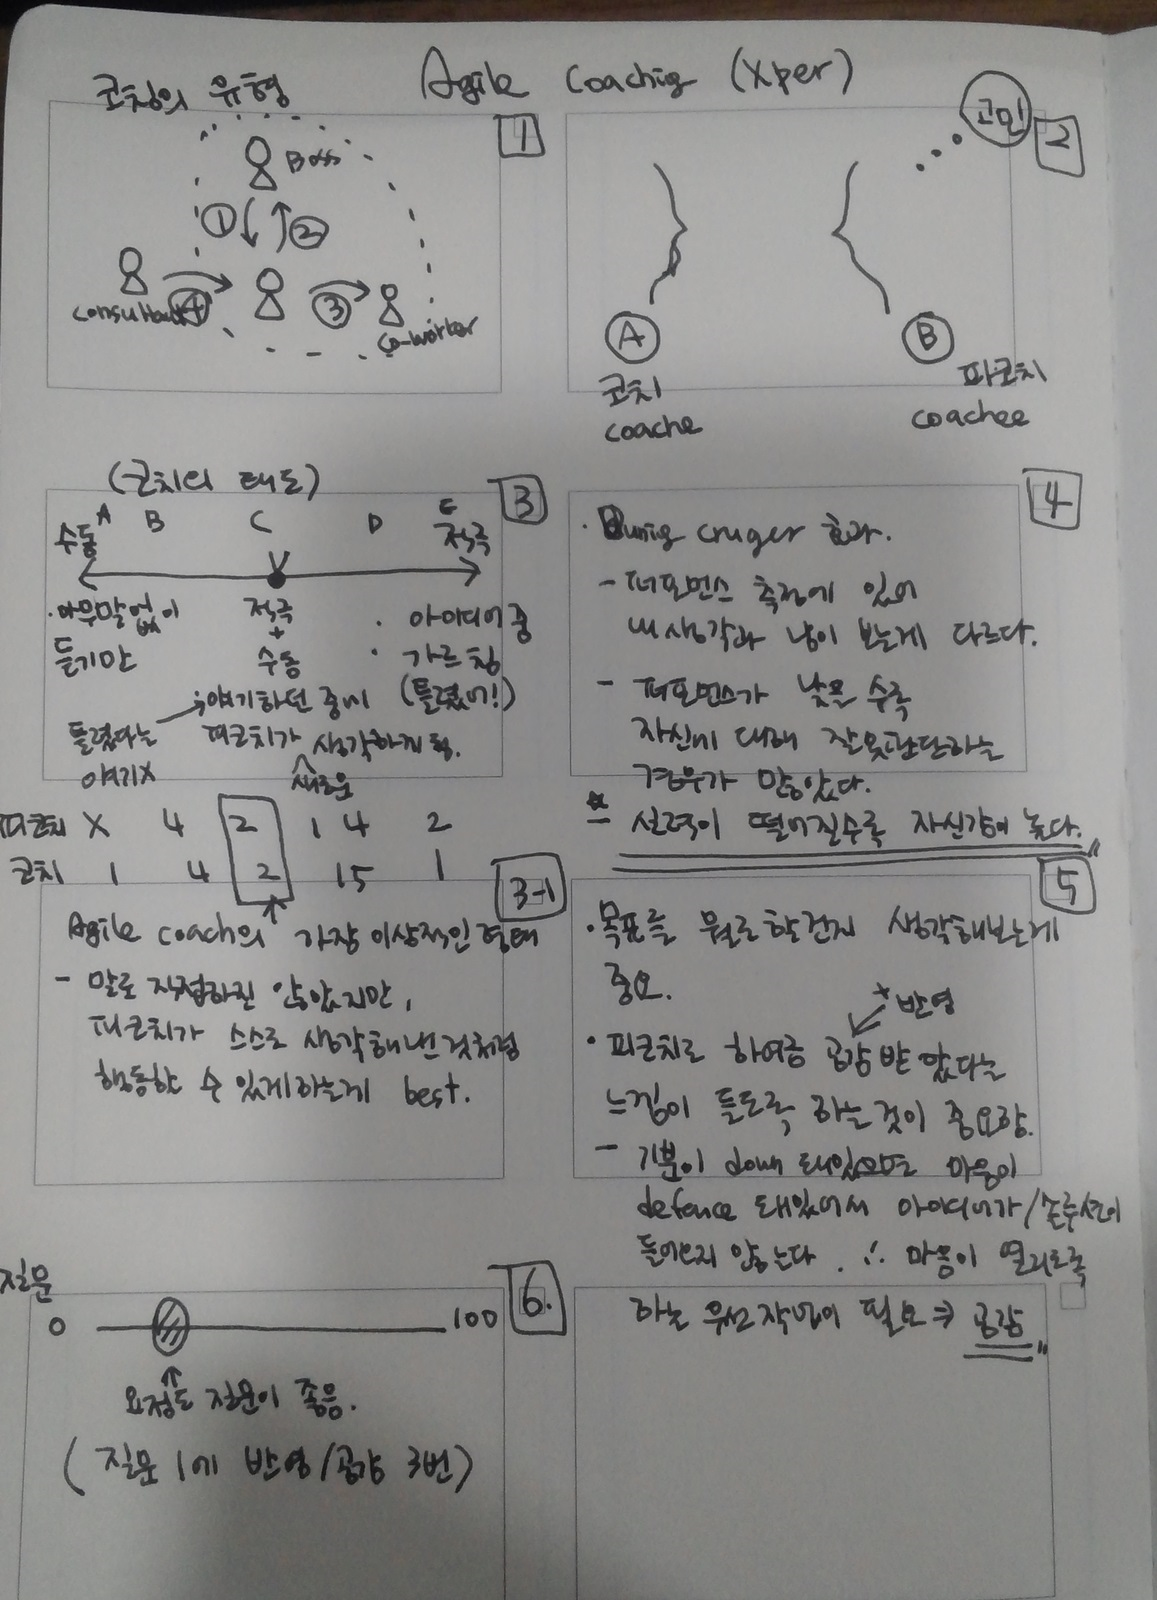 Agile Coachig (xper)
코칭의 유형
1
Boss
① ②
Consultant ④ ③
Co-worker
2
고민
A B
코치 피코치
coache coachee
(코치의 태도)
3
A B C D E
수동 적극
·아무말없이
듣기만
틀렸다는
얘기X
적극
+
수동
;얘기하던 중에
피코치가 새로운 생각하게 됨.
· 아이디어 줌
· 가르침
(틀렸어!)
피코치 X 4 2 1 4 2
코치 1 4 2 15 1
3-1
Agile coach의 가장 이상적인 형태
- 말로 직접하진 않았지만,
피코치가 스스로 생각해낸 것처럼
행동할 수 있게하는게 best.
4
· Dunig cruger 효과.
- 퍼포먼스 측정에 있어
내 생각과 남이 보는게 다르다.
- 퍼포먼스가 낮을 수록
자신에 대해 잘못판단하는
경우가 많았다.
실력이 떨어질수록 자신감이 높다.
5
·목표를 뭐로할건지 생각해보는게
중요.
+ 반영
· 피코치로 하여금 공감 받았다는
느낌이 들도록 하는것이 중요함.
- 기분이 down 돼있으면 마음이
defence 돼있어서 아이디어가/솔루션이
들어오지 않는다. ∴ 마음이 열리도록
하는 우선작업이 필요 → 공감
6.
질문
0 100
요정도 질문이 좋음.
(질문 1에 반영/공감 3번)